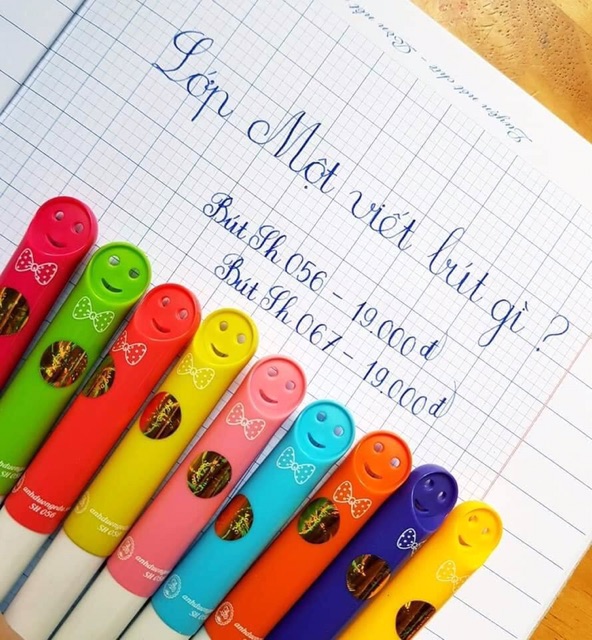 Luyện nét chữ - Rèn nết
Lớp Một viết bút gì ?
Bút Sh 056 - 19.000đ
Bút Sh 067 - 19.000đ
SH 056
SH 05
SH 05